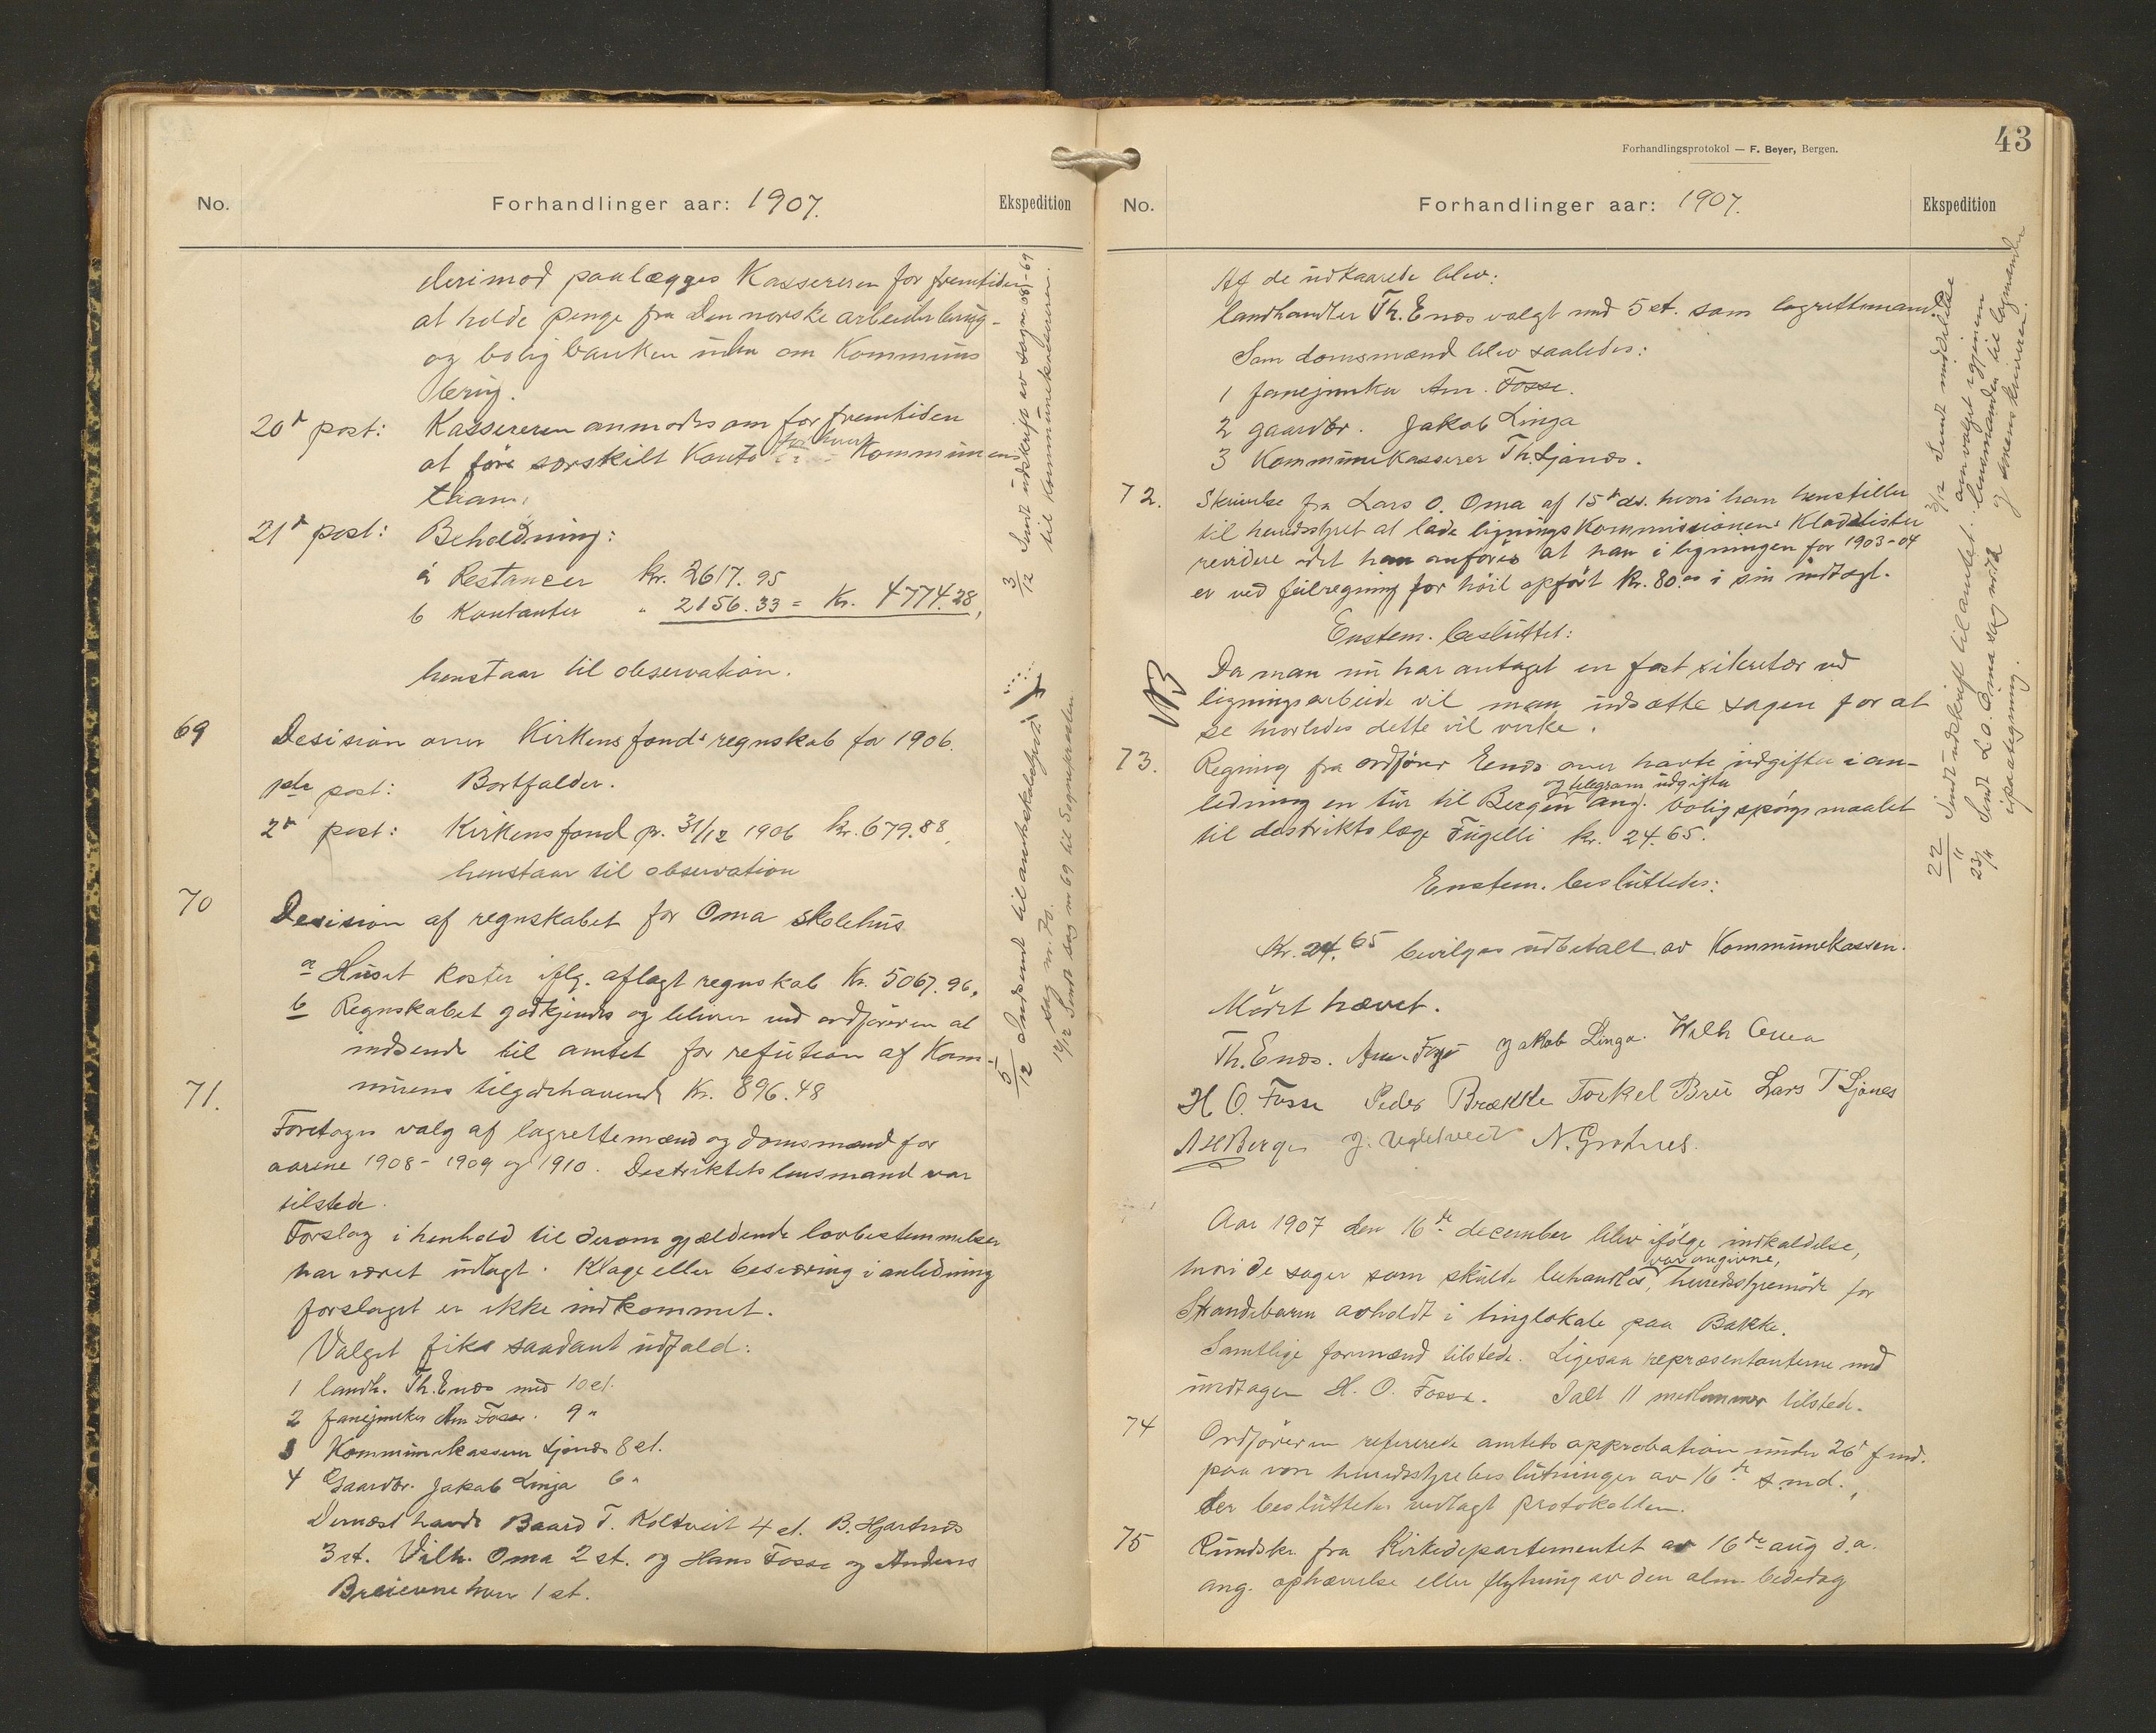 No.
Forhandlinger aar: 1907.
Ekspedition
derimod paalægges Kassereren for fremtiden
at holde penge fra Den norske arbeiderbrug-
og boligbanken uden om Kommunens
brug.
20de post: Kassereren anmodes om for fremtiden
at føre særskilt Konto for hvert Kommunens
laan.
21de post: Beholdning:
a Restancer Kr. 2617.95
b Kontanter " 2156.33 = Kr. 4774.28,
henstaar til observation.
69 Desision over Kirkens fonds regnskab for 1906.
1ste post: Bortfalder.
2de post: Kirkens fond pr. 31/12 1906 kr. 679.88,
henstaar til observation
70 Desision af regnskabet for Oma skolehus
a Huset koster iflg. aflagt regnskab Kr. 5067.96,
b Regnskabet godkjendes og bliver ved ordføreren at
indsende til amtet for refution af Kom-
munens tilgodehavende Kr. 896.48
71. Foretoges valg af lagrettemænd og domsmænd for
aarene 1908 - 1909 og 1910. Destriktets lensmand var
tilstede.
Forslag i henhold til derom gjældende lovbestemmelser
har været udlagt. Klage eller besværing i anledning
forslaget er ikke indkommet.
Valget fik saadant udfald:
1 landh. Th. Enæs med 10 st.
2 fanejunker Am. Fosse. 9 "
3 Kommunekasserer Ljonæs 8 st.
4 Gaardbr. Jakob Linga 6 "
Dernæst havde Baard T. Koldveit 4 st. B. Hjartnæs
3 st. Vilh. Oma 2 st. og Hans Fosse og Anders
Breievne hver 1 st.
3/12 Sendt udskrift av sagne 68-69
til Kommunekassereren.
5/12 Indsendt til amtsskolestyret
sag nr. 70.
14/12 Sendt sag nr 69 til Sognepresten
Forhandlingsprotokol — F. Beyer, Bergen.
43
No.
Forhandlinger aar: 1907.
Ekspedition
Af de udkaarede blev:
landhandler Th. Enæs valgt med 5 st. som lagrettemand.
Som domsmænd blev saaledes:
1 fanejunker Am. Fosse.
2 gaardbr. Jakob Linga
3 Kommunekasserer Th. Ljonæs.
72. Skrivelse fra Lars O. Oma af 15de ds. hvori han henstiller
til herredsstyret at lade ligningskommissionens Kladdelister
revidere idet han anfører at han i ligningen for 1903-04
er ved feilregning for høit opført Kr. 80.00 i sin indtægt.
Enstem. besluttet:
NB Da man nu har antaget en fast sikretær ved
ligningsarbeide vil man udsætte sagen for at
se hvorledes dette vil virke.
73. Regning fra ordfører Enæs over havte udgifter i an-
og telegram udgifter
ledning en tur til Bergen ang. boligspørgsmaalet
til destriktslæge Fugelli kr. 24.65.
Enstem. besluttedes:
Kr. 24.65 bevilges udbetalt av Kommunekassen.
Mødet hævet.
Th. Enæs. Am. Fosse Jakob Linga. Wilh Oma
H. O. Fosse Peder Brække Torkel Bru Lars T Ljones
J. Vigletveit N. Grotnes.
Aar 1907 den 16de december blev ifølge indkaldelse,
var angivne,
hvori de sager som skulde behandles, herredsstyremøde for
Strandebarm avholdt i tinglokale paa Bakke.
Samtlige formænd tilstede. Ligesaa repræsentanterne med
undtagen H. O. Fosse. Ialt 11 medlemmer tilstede.
74 Ordføreren refererede amtets approbation under 26de f. md.
paa vore herredsstyrebeslutninger av 16de s. md.,
der besluttedes vedlagt protokollen.
75 Rundskr. fra Kirkedepartementet av 16de aug d.a.
ang. ophævelse eller flytning av den alm. bededag
3/12 Sendt meddelelse
om valget igjennem
lensmanden til lagmanden
og sorenskriveren.
22/11 Sendt udskrift til amtet.
23/11 Sendt L. O. Oma sag nr. 72
i paategning.